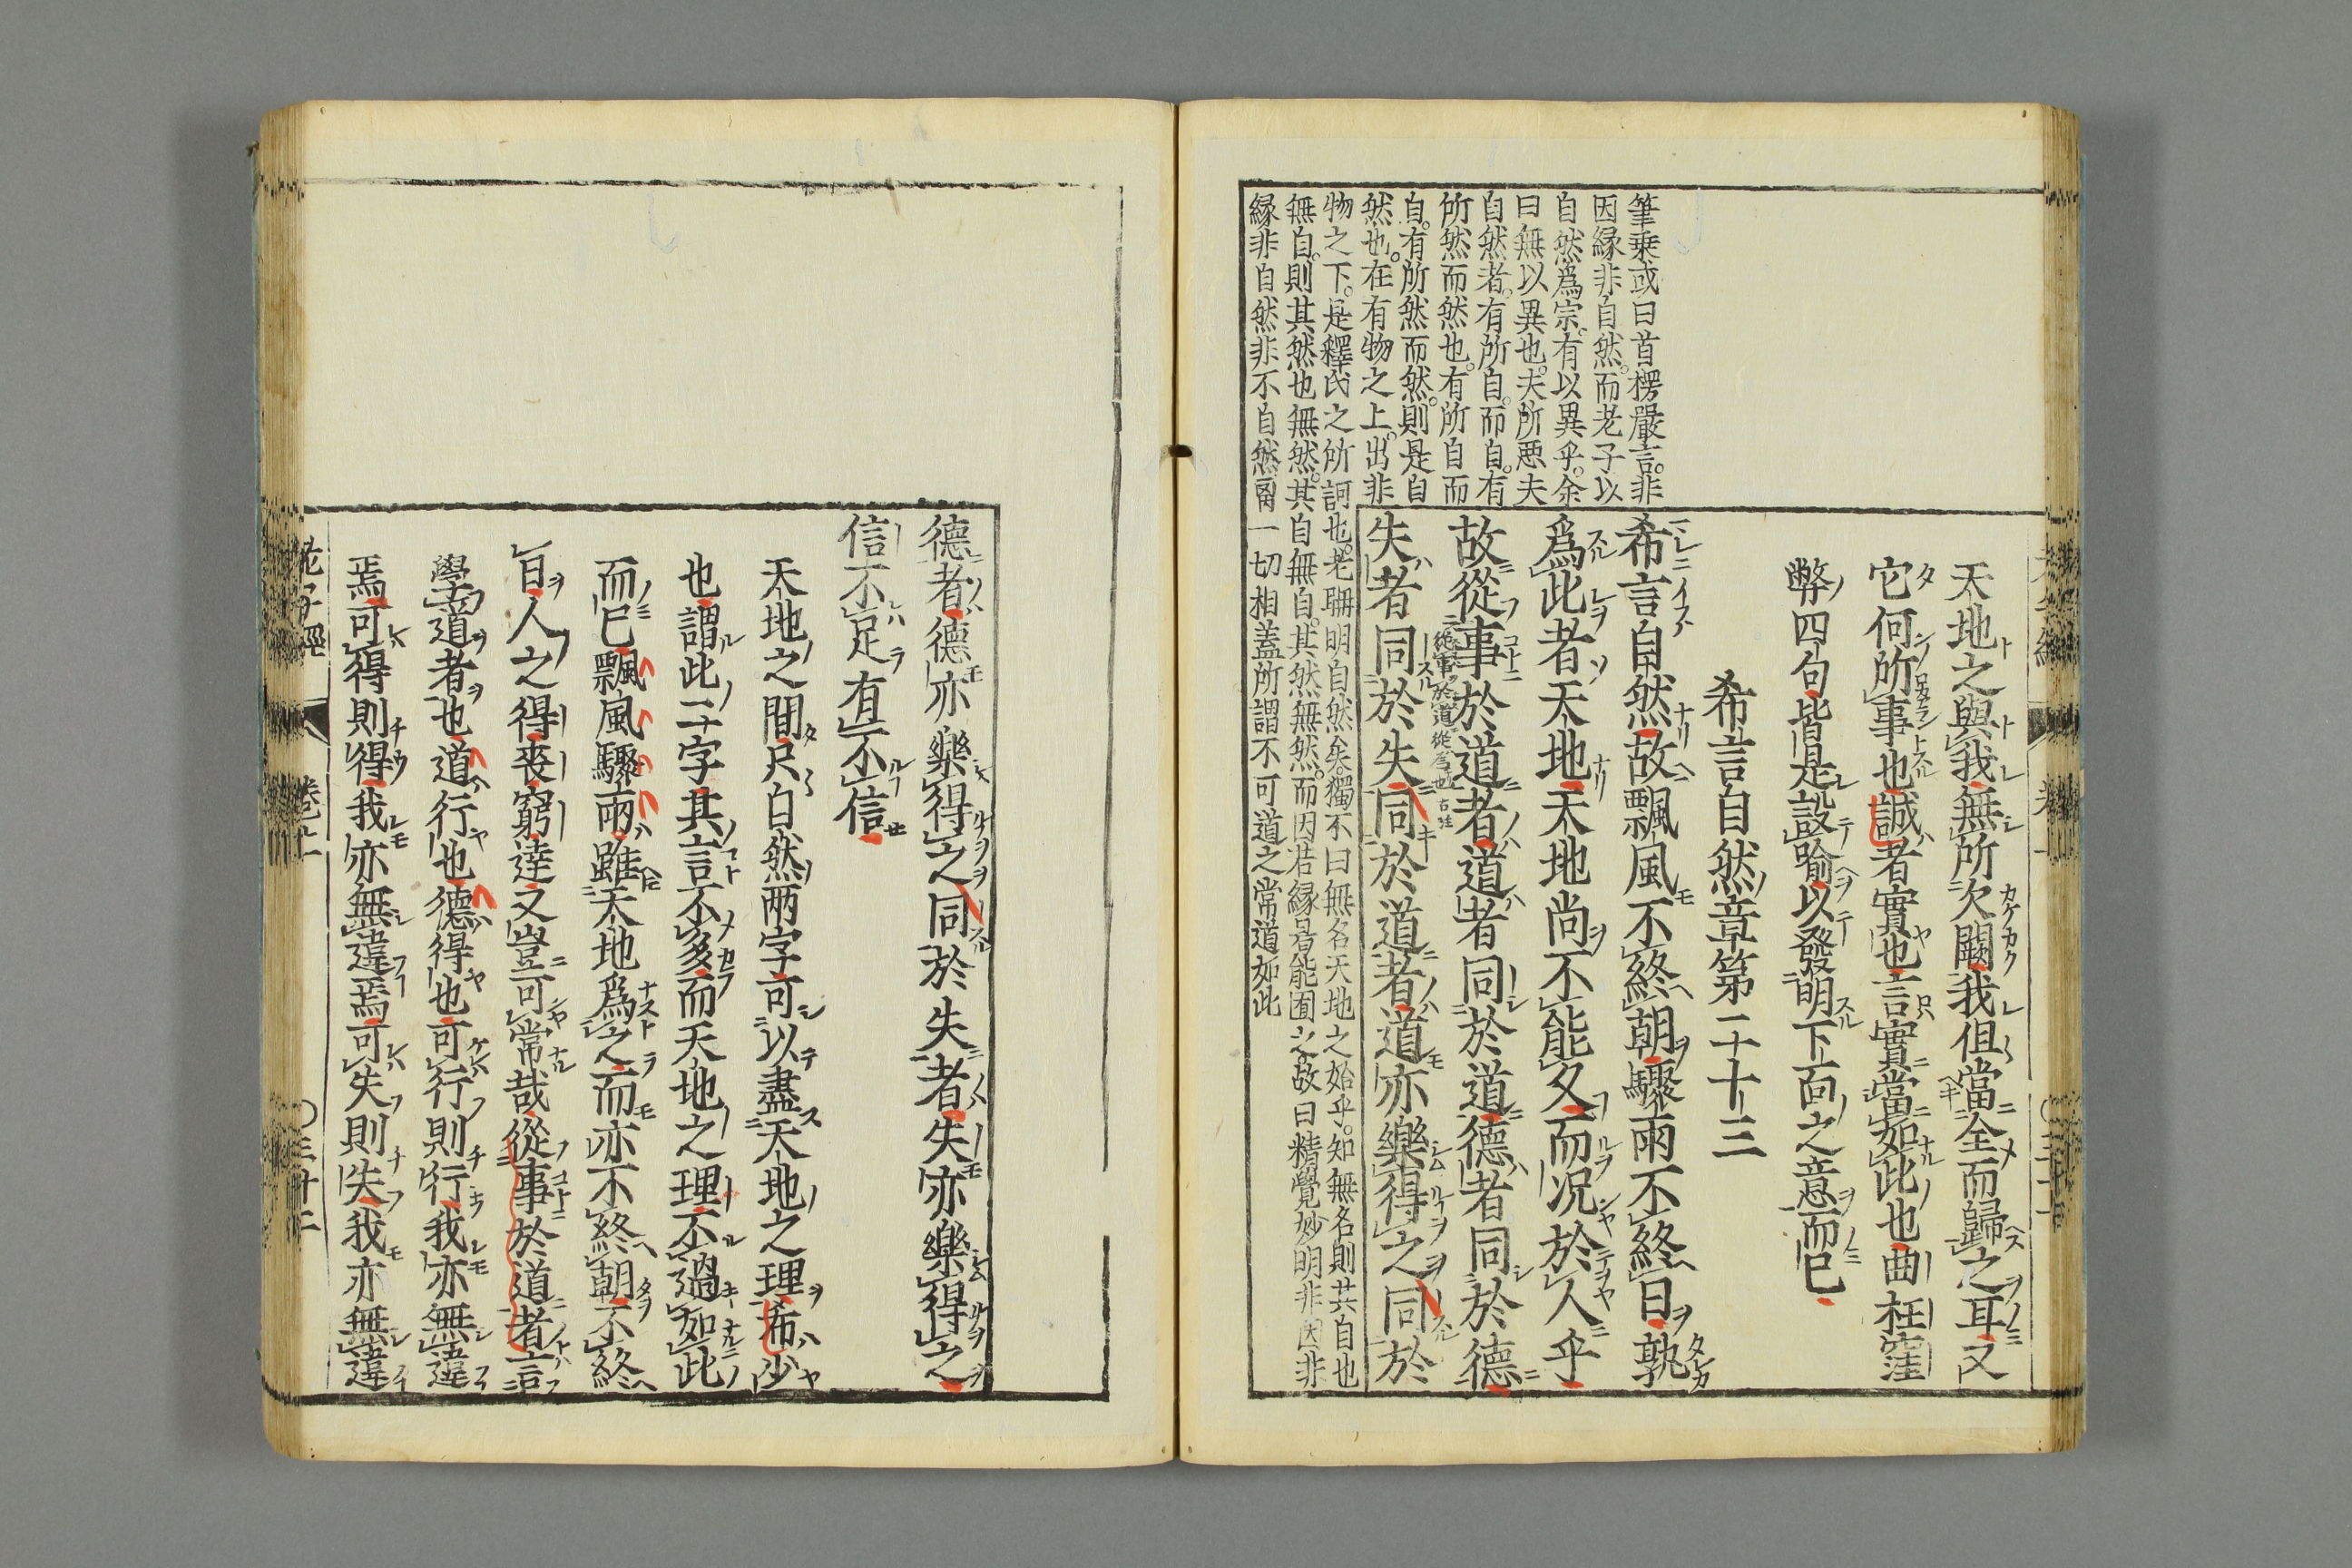 天地之與我無所欠闕我但當全而歸之耳又
它何所事也誠者實也言實當如此也曲枉窪
弊四句皆是設喻以發明下面之意而已
希言自然章第二十三
希言自然故飄風不終朝驟雨不終日孰
爲此者天地天地尚不能久而況於人乎
故從事於道者道者同於道德者同於德
失者同於失同於道者道亦樂得之同於
筆乗或曰首楞嚴言非
因縁非自然而老子以
自然爲宗有以異乎余
曰無以異也夫所悪夫
自然者有所自而自有
所然而然也有所自而
自有所然而然則是自
然也在有物之上出非
物之下是釋氏之所訶也老聃明自然矣獨不曰無名天地之始乎知無名則其自也
無自則其然也無然其自無自其然無然而因若縁曷能囿之故曰精覺妙明非因非
縁非自然非不自然爾一切相蓋所謂不可道之常道如此
德者德亦樂得之同於失者失亦樂得之
信不足有不信
天地之間只自然兩字可以盡天地之理希少
也謂此二字其言不多而天地之理不過如此
而已飄風驟雨雖天地爲之而亦不終朝不終
日人之得喪窮達又豈可常哉從事於道者言
學道者也道行也德得也可行則行我亦無違
焉可得則得我亦無違焉可失則失我亦無違
老子經 卷上 ○三十二